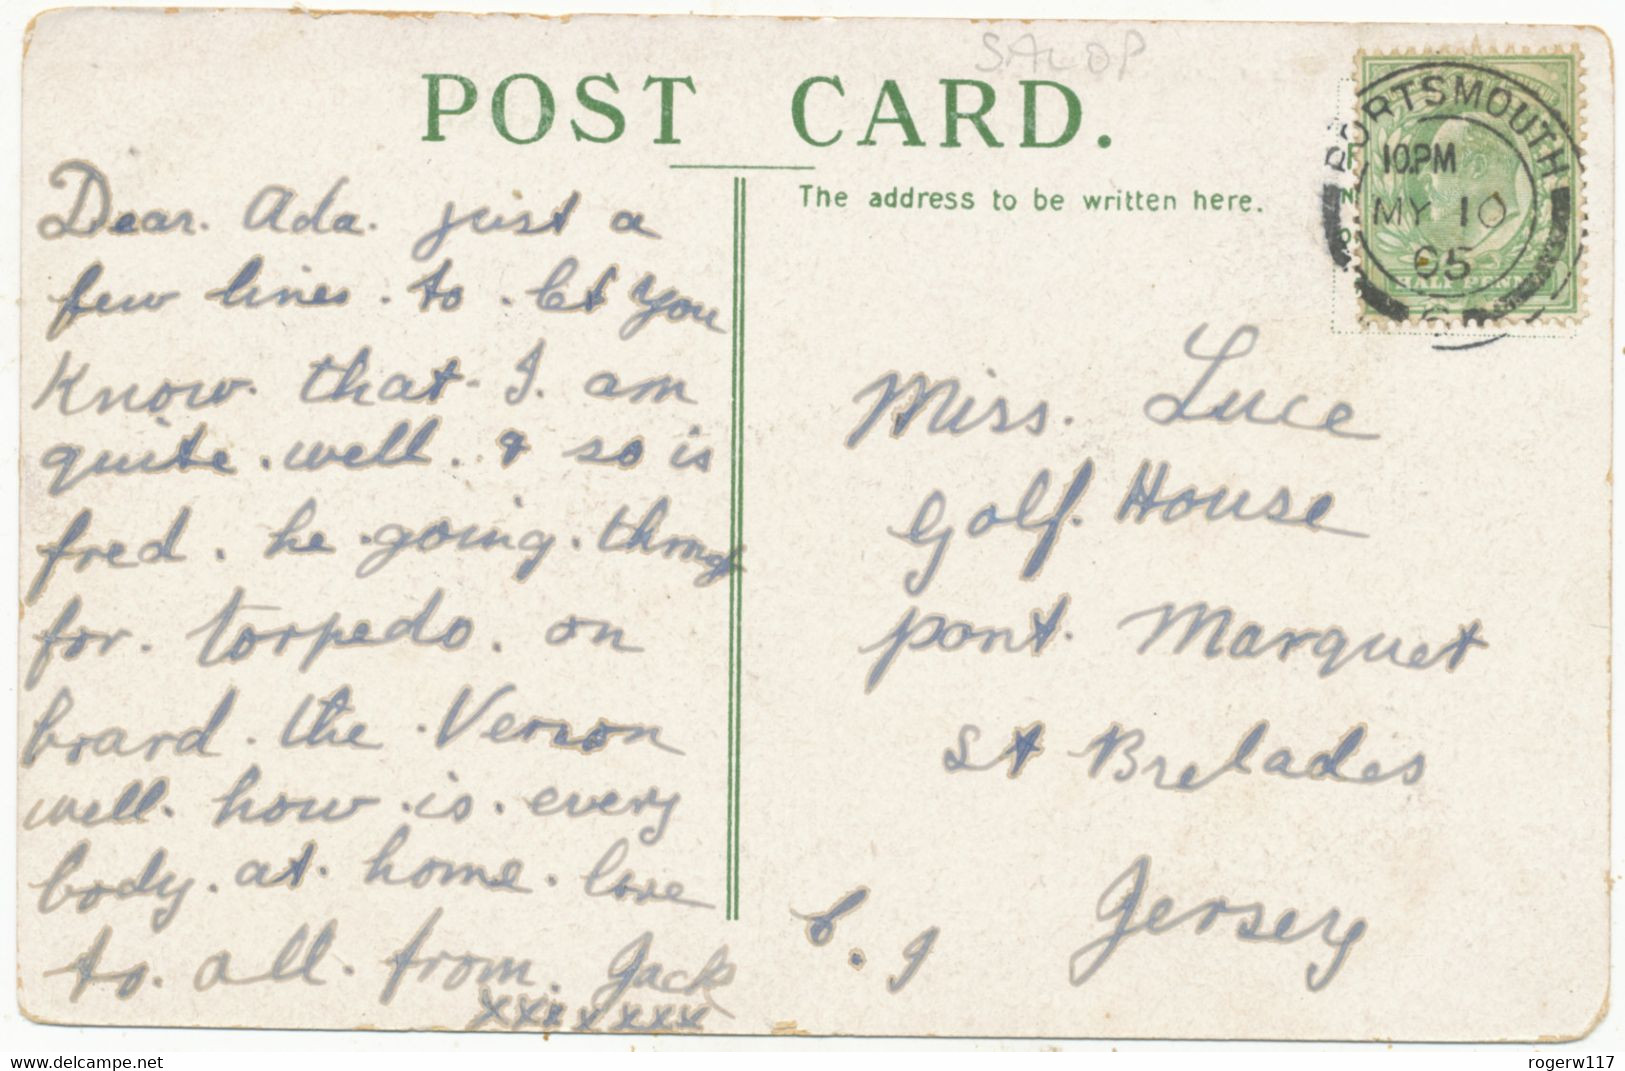 SALOP
POST CARD.
The address to be written here.
PORTSMOUTH
10.PM
MY 10
05
HALF PENNY
Dear. Ada. just a
few lines. to. let you
Know. that. I. am
quite. well. & so is
fred. he. going. through
for. torpedo. on
board. the. Vernon
well. how. is. every
body. at. home. love
to. all. from. Jack
xxxxxxx
Miss. Luce
Golf. House
pont. Marquet
St Brelades
Jersey
C. I
see more at
rogerw117